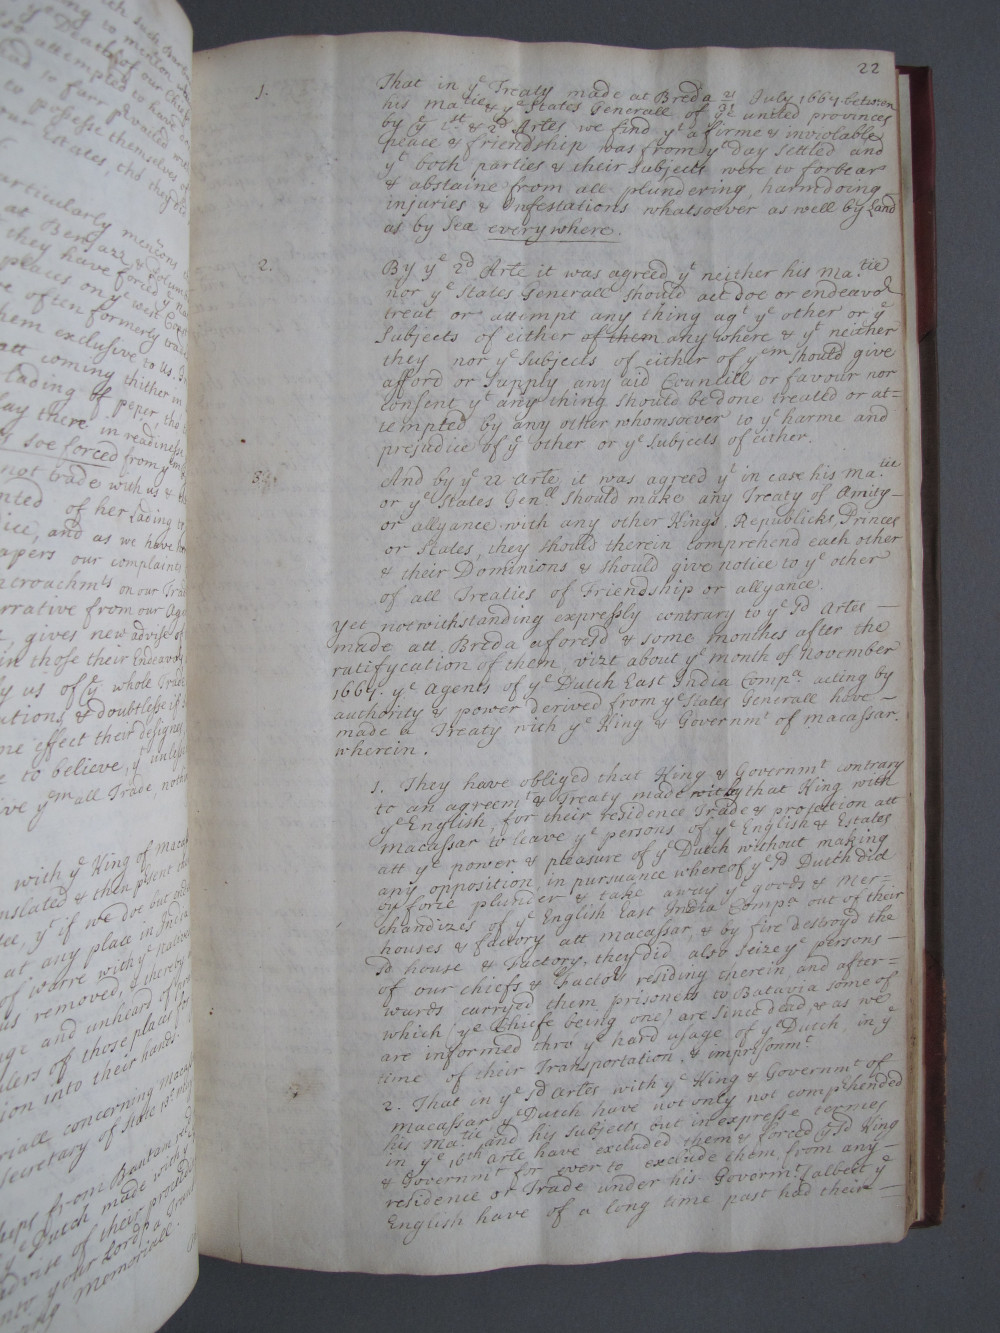 ing to menton
Death of our Chief
attempted to have
had so farr pvailed
to possesse themselves of
our Estates, tho they did
articularly mentons
at Benjarr &
they have forced
places on ye west Coast
ve often formerly traded
hem exclusive to us
att coming thither
lading of peper tho
lay there in readinesse
soe forced from ym
not trade with us &
nted of her Lading
ice, and as we have
apers our complaints
ncroachmts on our Trade
rrative from our
gives new advise of
in those their Endeavors
by us of ye whole Trade
ations & doubtlesse if
me effect their designes
e to believe, yt unlesse
ive ym all Trade,
with ye King of Macas
nslated & then psent
yt if we doe but
at any place in India
of warre with ye natives
us removed, & thereby
nge and unheard of
ulers of those places
ion into their hands
riall concerning Macas
Secretary of State
ships from Bantam
ye Dutch made with
advise of their proceed
unto your Lordps a
ing Memoriall.
22
1. That in ye Treaty made at Breda 21/31 July 1667 between
his matie & ye States Generall of ye united provinces
by ye 1st & 2d Artes we find yt a firme & inviolable
peace & friendship was from yt day settled and
yt both parties & their Subjects were to forbear
& abstaine from all plundering, harmdoing
injuries & Infestations whatsoever as well by Land
as by Sea everywhere.
2. By ye 2d Arte it was agreed yt neither his Matie
nor ye States Generall should act doe or endeavor
treat or attempt any thing agt ye other or ye
Subjects of either of them any where & yt neither
they nor ye Subjects of either of ym should give
afford or Supply any aid Councill or favour nor
consent yt any thing should be done treated or at=
tempted by any other whomsoever to ye harme and
prejudice of ye other or ye Subjects of either.
3. And by ye 22 Arte it was agreed yt in case his Matie
or ye States Genll should make any Treaty of Amity -
or allyance with any other Kings, Republicks, Princes
or States, they should therein comprehend each other
& their Dominions & should give notice to ye other
of all Treaties of Friendship or allyance.
Yet notwithstanding expressly contrary to ye sd Artes -
made att Breda aforesd & some mouthes after the
ratifycation of them, vizt about ye month of November
1667. ye Agents of ye Dutch East India Compa acting by
authority & power derived from ye States Generall have -
made a Treaty with ye King & Governmt of macassar
wherein.
1. They have obliged that King & Governmt contrary
to an agreemt & Treaty made with by that King with
ye English for their residence Trade & protection att
Macassar to leave ye persons of ye English & Estates
att ye power & pleasure of ye Dutch without making
any opposition, in pursuance whereof ye sd Dutch did
by force plunder & take away ye goods & Mer=
chandizes of ye English East India Compa out of their
houses & factory att Macassar, & by fire destroyd the
sd house & Factory, they did also seize ye persons -
of our chiefs & Factors residing therein and after=
wards carryed them prisoners to Batavia some of
which (ye Chiefe being one) are Since dead, & as we
are informed thro ye hard usage of ye Dutch, in ye
time of their Transportation & imprisonmt
2. That in ye sd Artes with ye King & Governmt of
Macassar ye Dutch have not only not comprehended
his Matie and his Subjects but in expresse termes
in ye 16th arte have excluded them & forced ye sd King
& Governmt for ever to exclude them from any -
residence or Trade under his Govermt, (albeit ye
English have of a long time past had their =